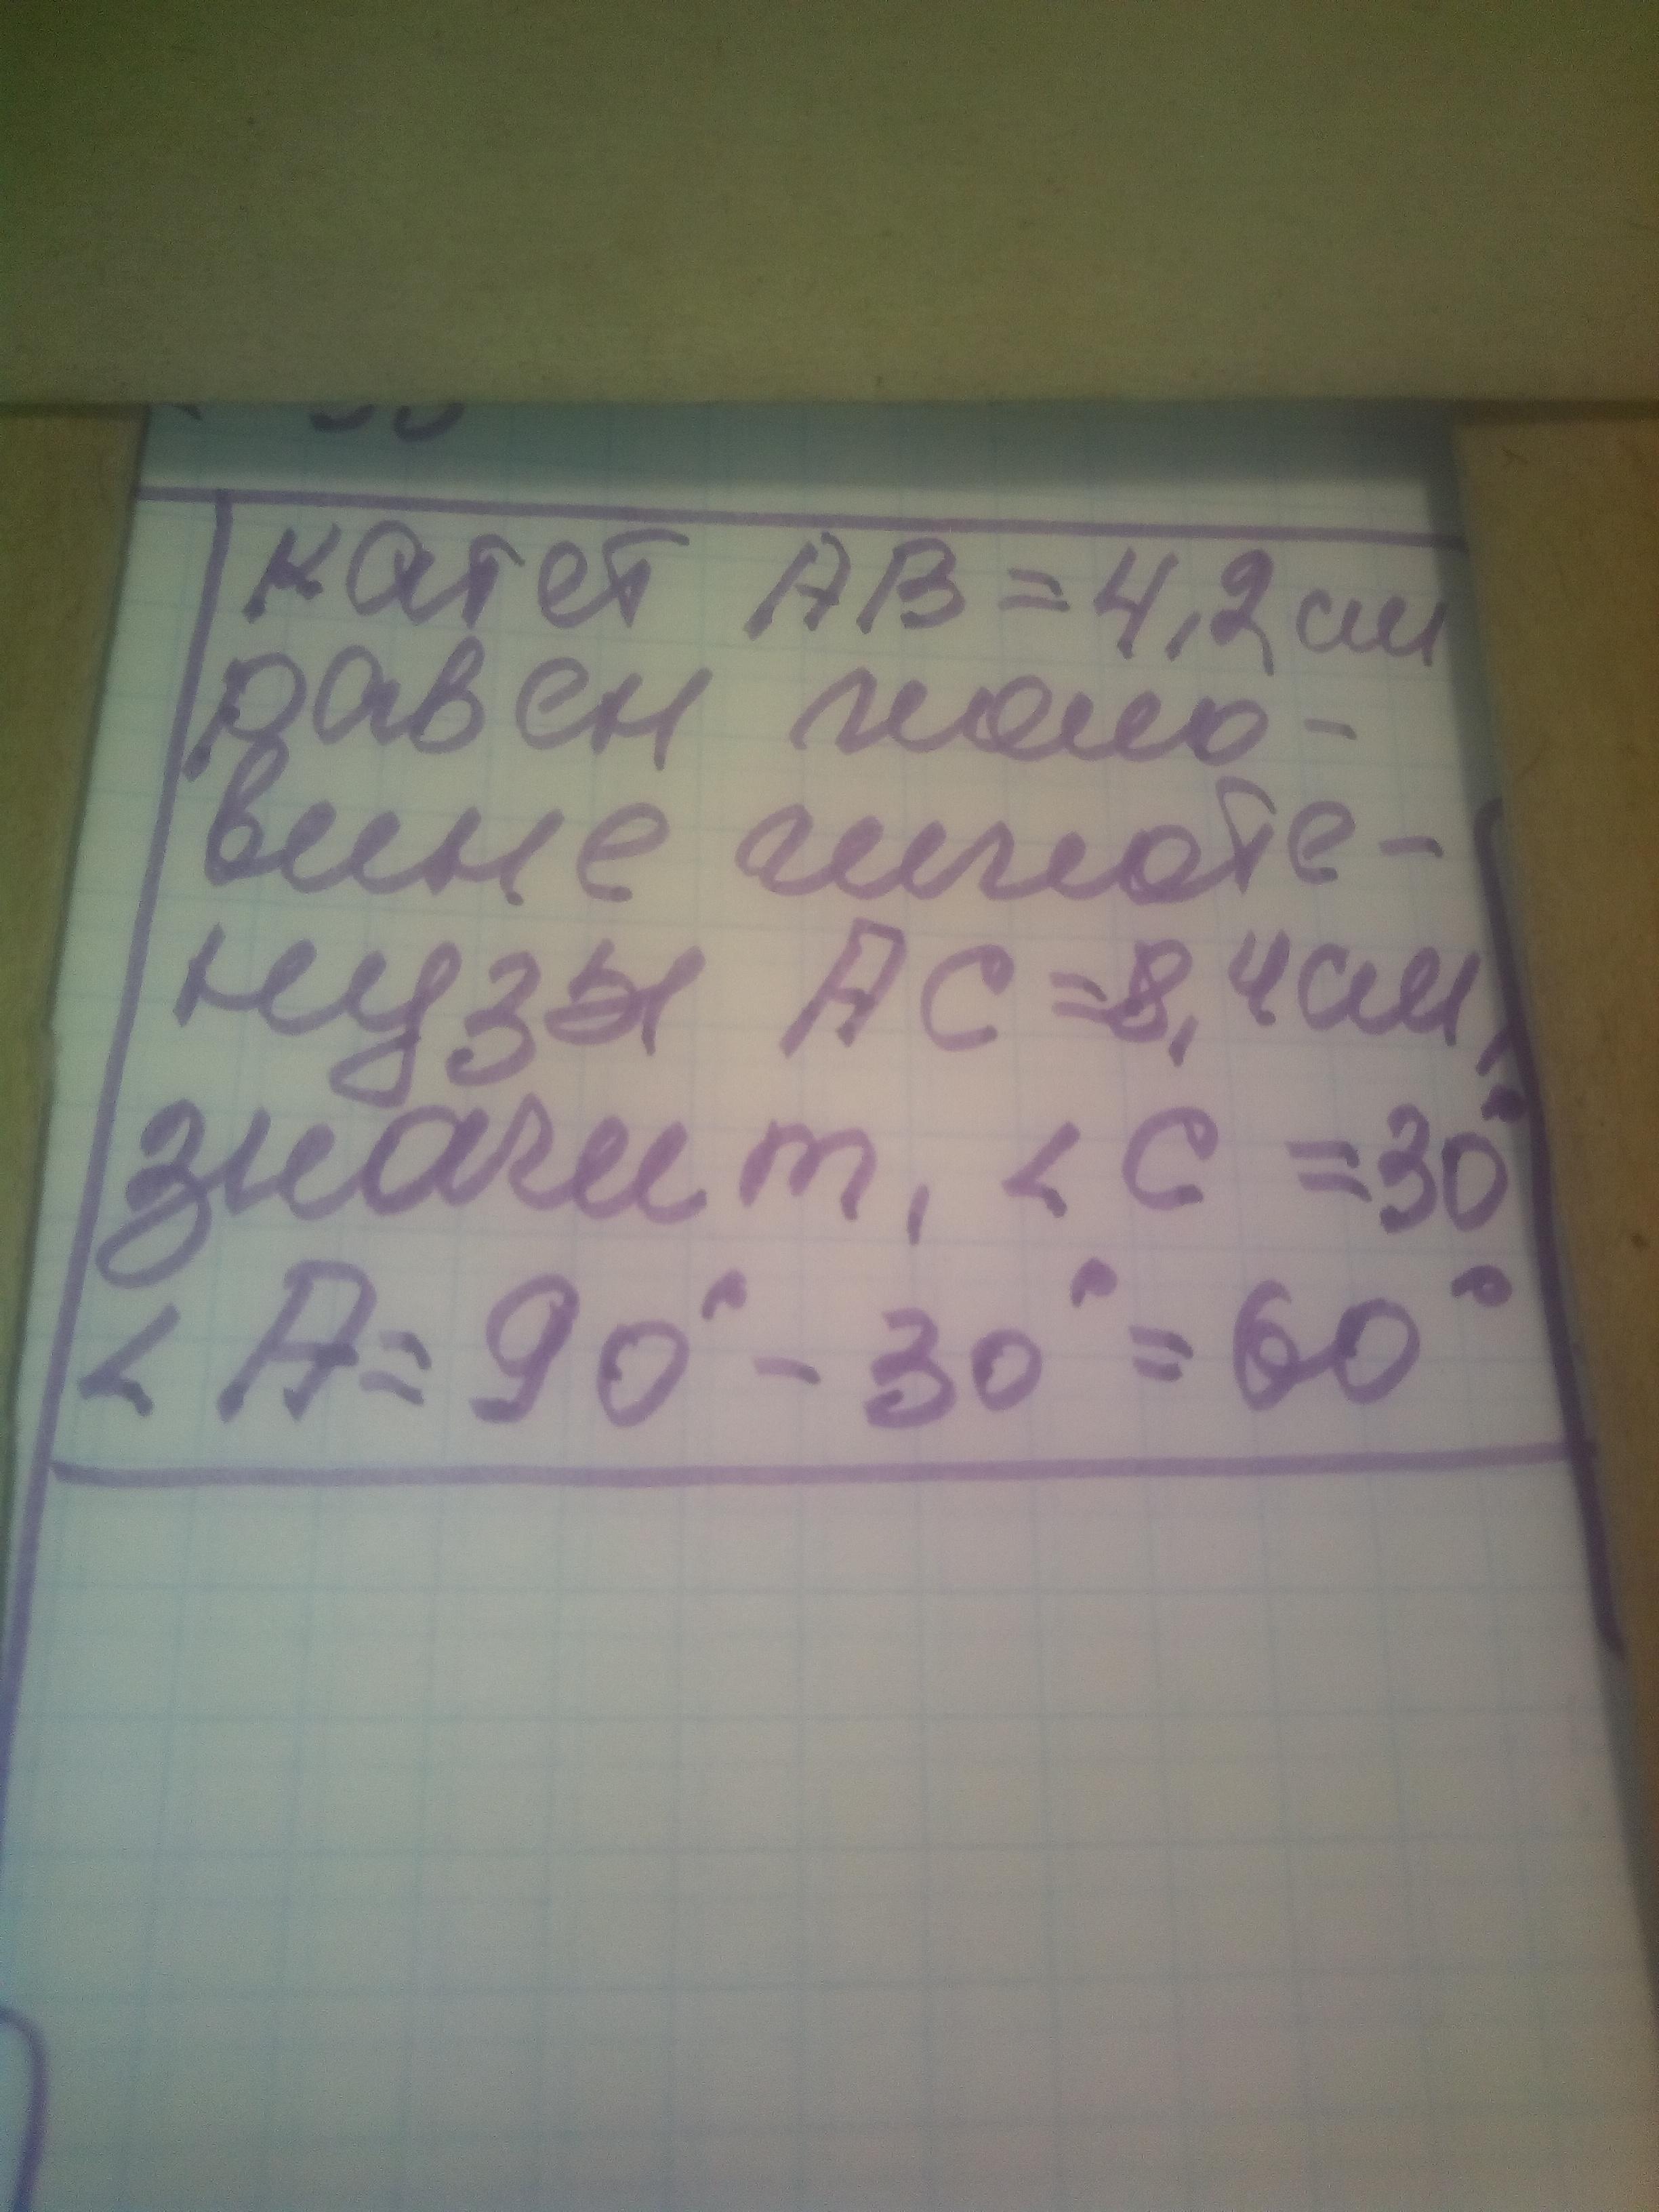 катет AB = 4,2 см
равен поло-
вине гипоте-
нузы AC = 8,4 см,
значит, ∠C = 30°
∠A = 90° - 30° = 60°